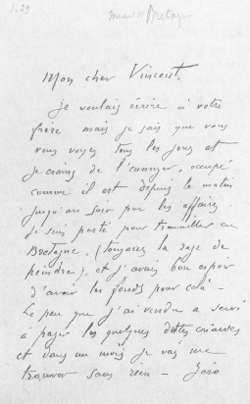 Mon cher Vincent,
Je voulais écrire à votre
frère mais je sais que vous
vous voyez tous les jours et
je crains de l'ennuyer, occupé
comme il est depuis le matin
jusqu'au soir par les affaires.
Je suis parti pour travailler en
Bretagne, (toujours la rage de
peindre), et j'avais bon espoir
d'avoir les fonds pour celà -
Le peu que j'ai vendu a servi
à payer les quelques dettes criardes
et dans un mois je vais me
trouver sans rien - Zéro